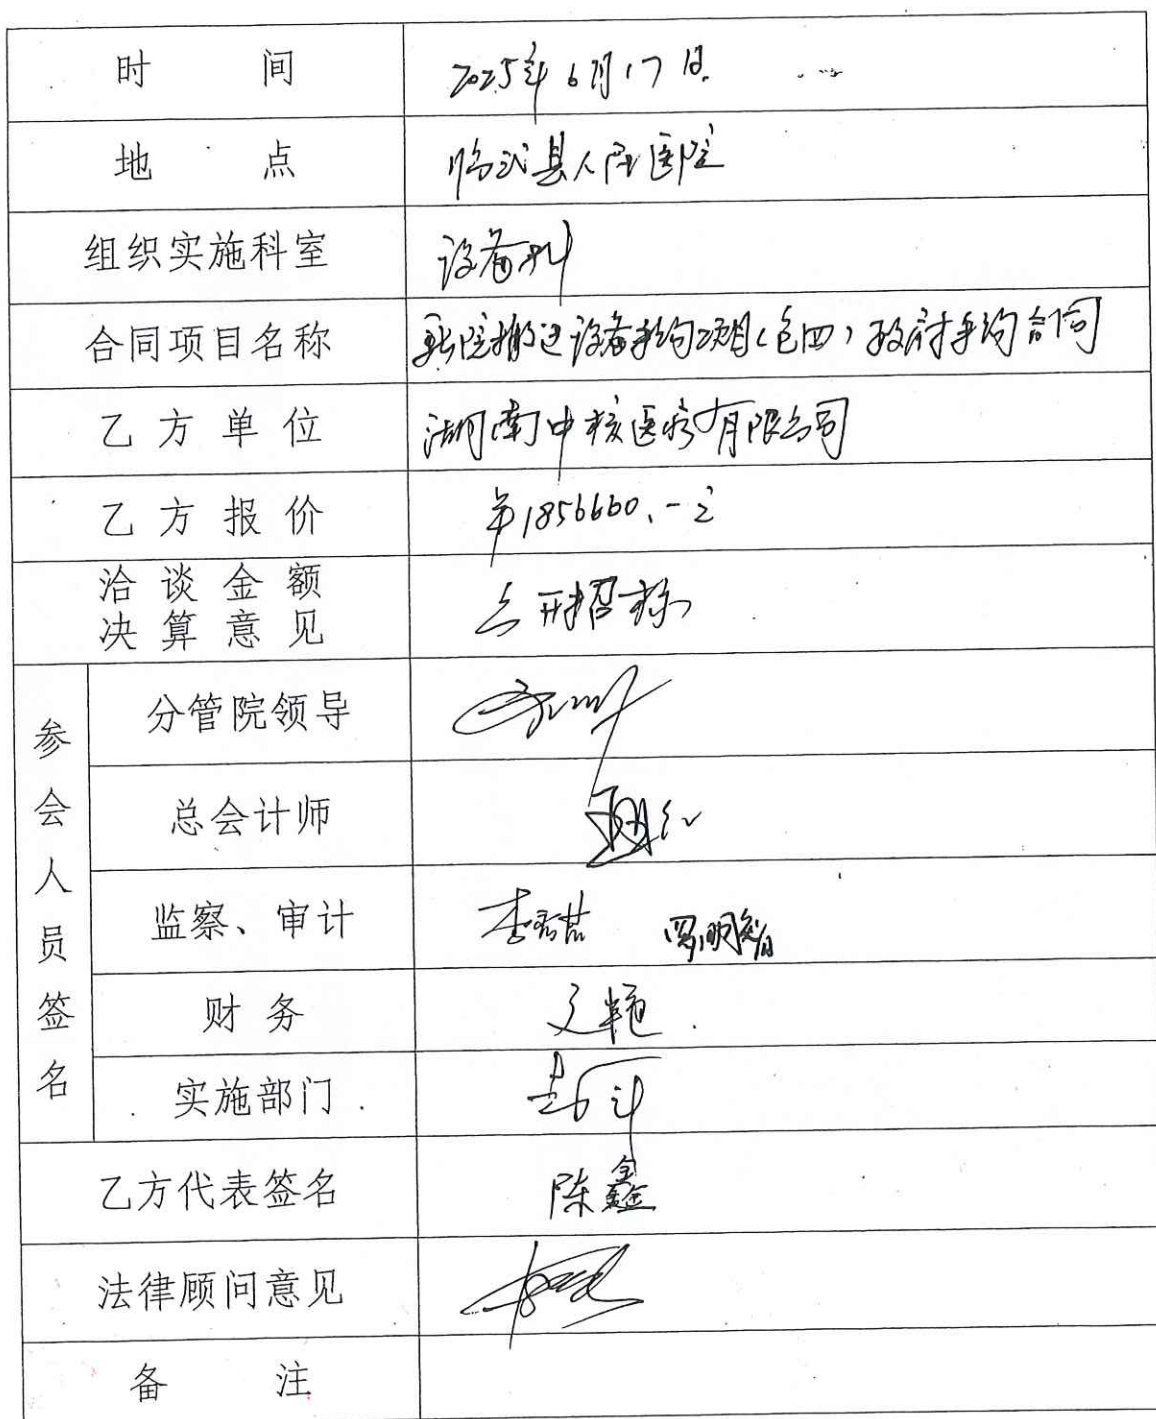 时 间 2025年6月17日.
地 点 临武县人民医院
组织实施科室 设备科
合同项目名称 新院搬迁设备采购项目(包四)政府采购合同
乙方单位 湖南中核医疗有限公司
乙方报价 ¥1856660.-元
洽谈金额
决算意见 公开招标
参会人员签名
分管院领导
总会计师
监察、审计
财务
实施部门
乙方代表签名 陈鑫
法律顾问意见
备 注